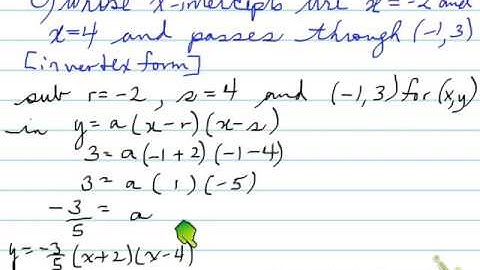 c) whose x-intercepts are x = -2 and
x=4 and passes through (-1, 3)
[in vertex form]
sub r= -2 , s = 4 and (-1, 3) for (x,y)
in y = a (x-r) (x-s)
3 = a (-1+2) (-1-4)
3 = a (1) (-5)
-3/5 = a
y = -3/5 (x+2) (x-4)